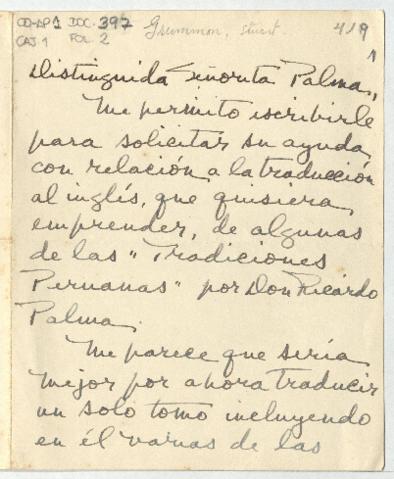 OD-AP1 DOC. 397 Grummon, Stuart. 4/9
CAJ. 1 FOL. 2
1
Distinguida Señorita Palma,
Me permito escribirle
para solicitar su ayuda
con relación a la traducción
al inglés, que quisiera
emprender, de algunas
de las "Tradiciones
Peruanas" por Don Ricardo
Palma.
Me parece que sería
mejor por ahora traducir
un solo tomo incluyendo
en él varias de las